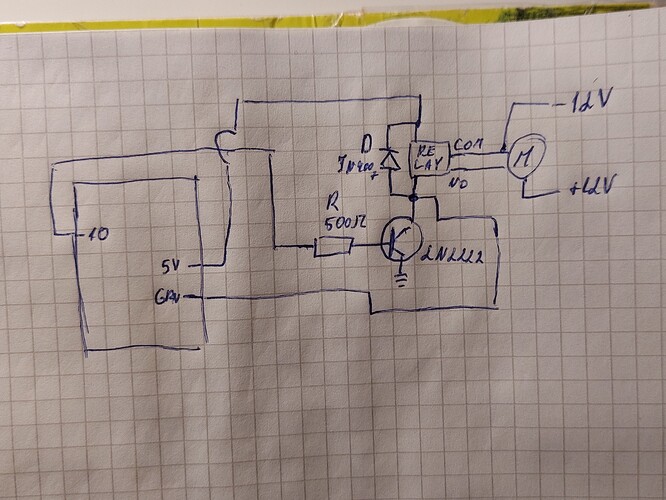 -12V
D
1N400
7
RE
LAY
COM
NO
M
+12V
R
500Ω
2N2222
10
5V
GRN